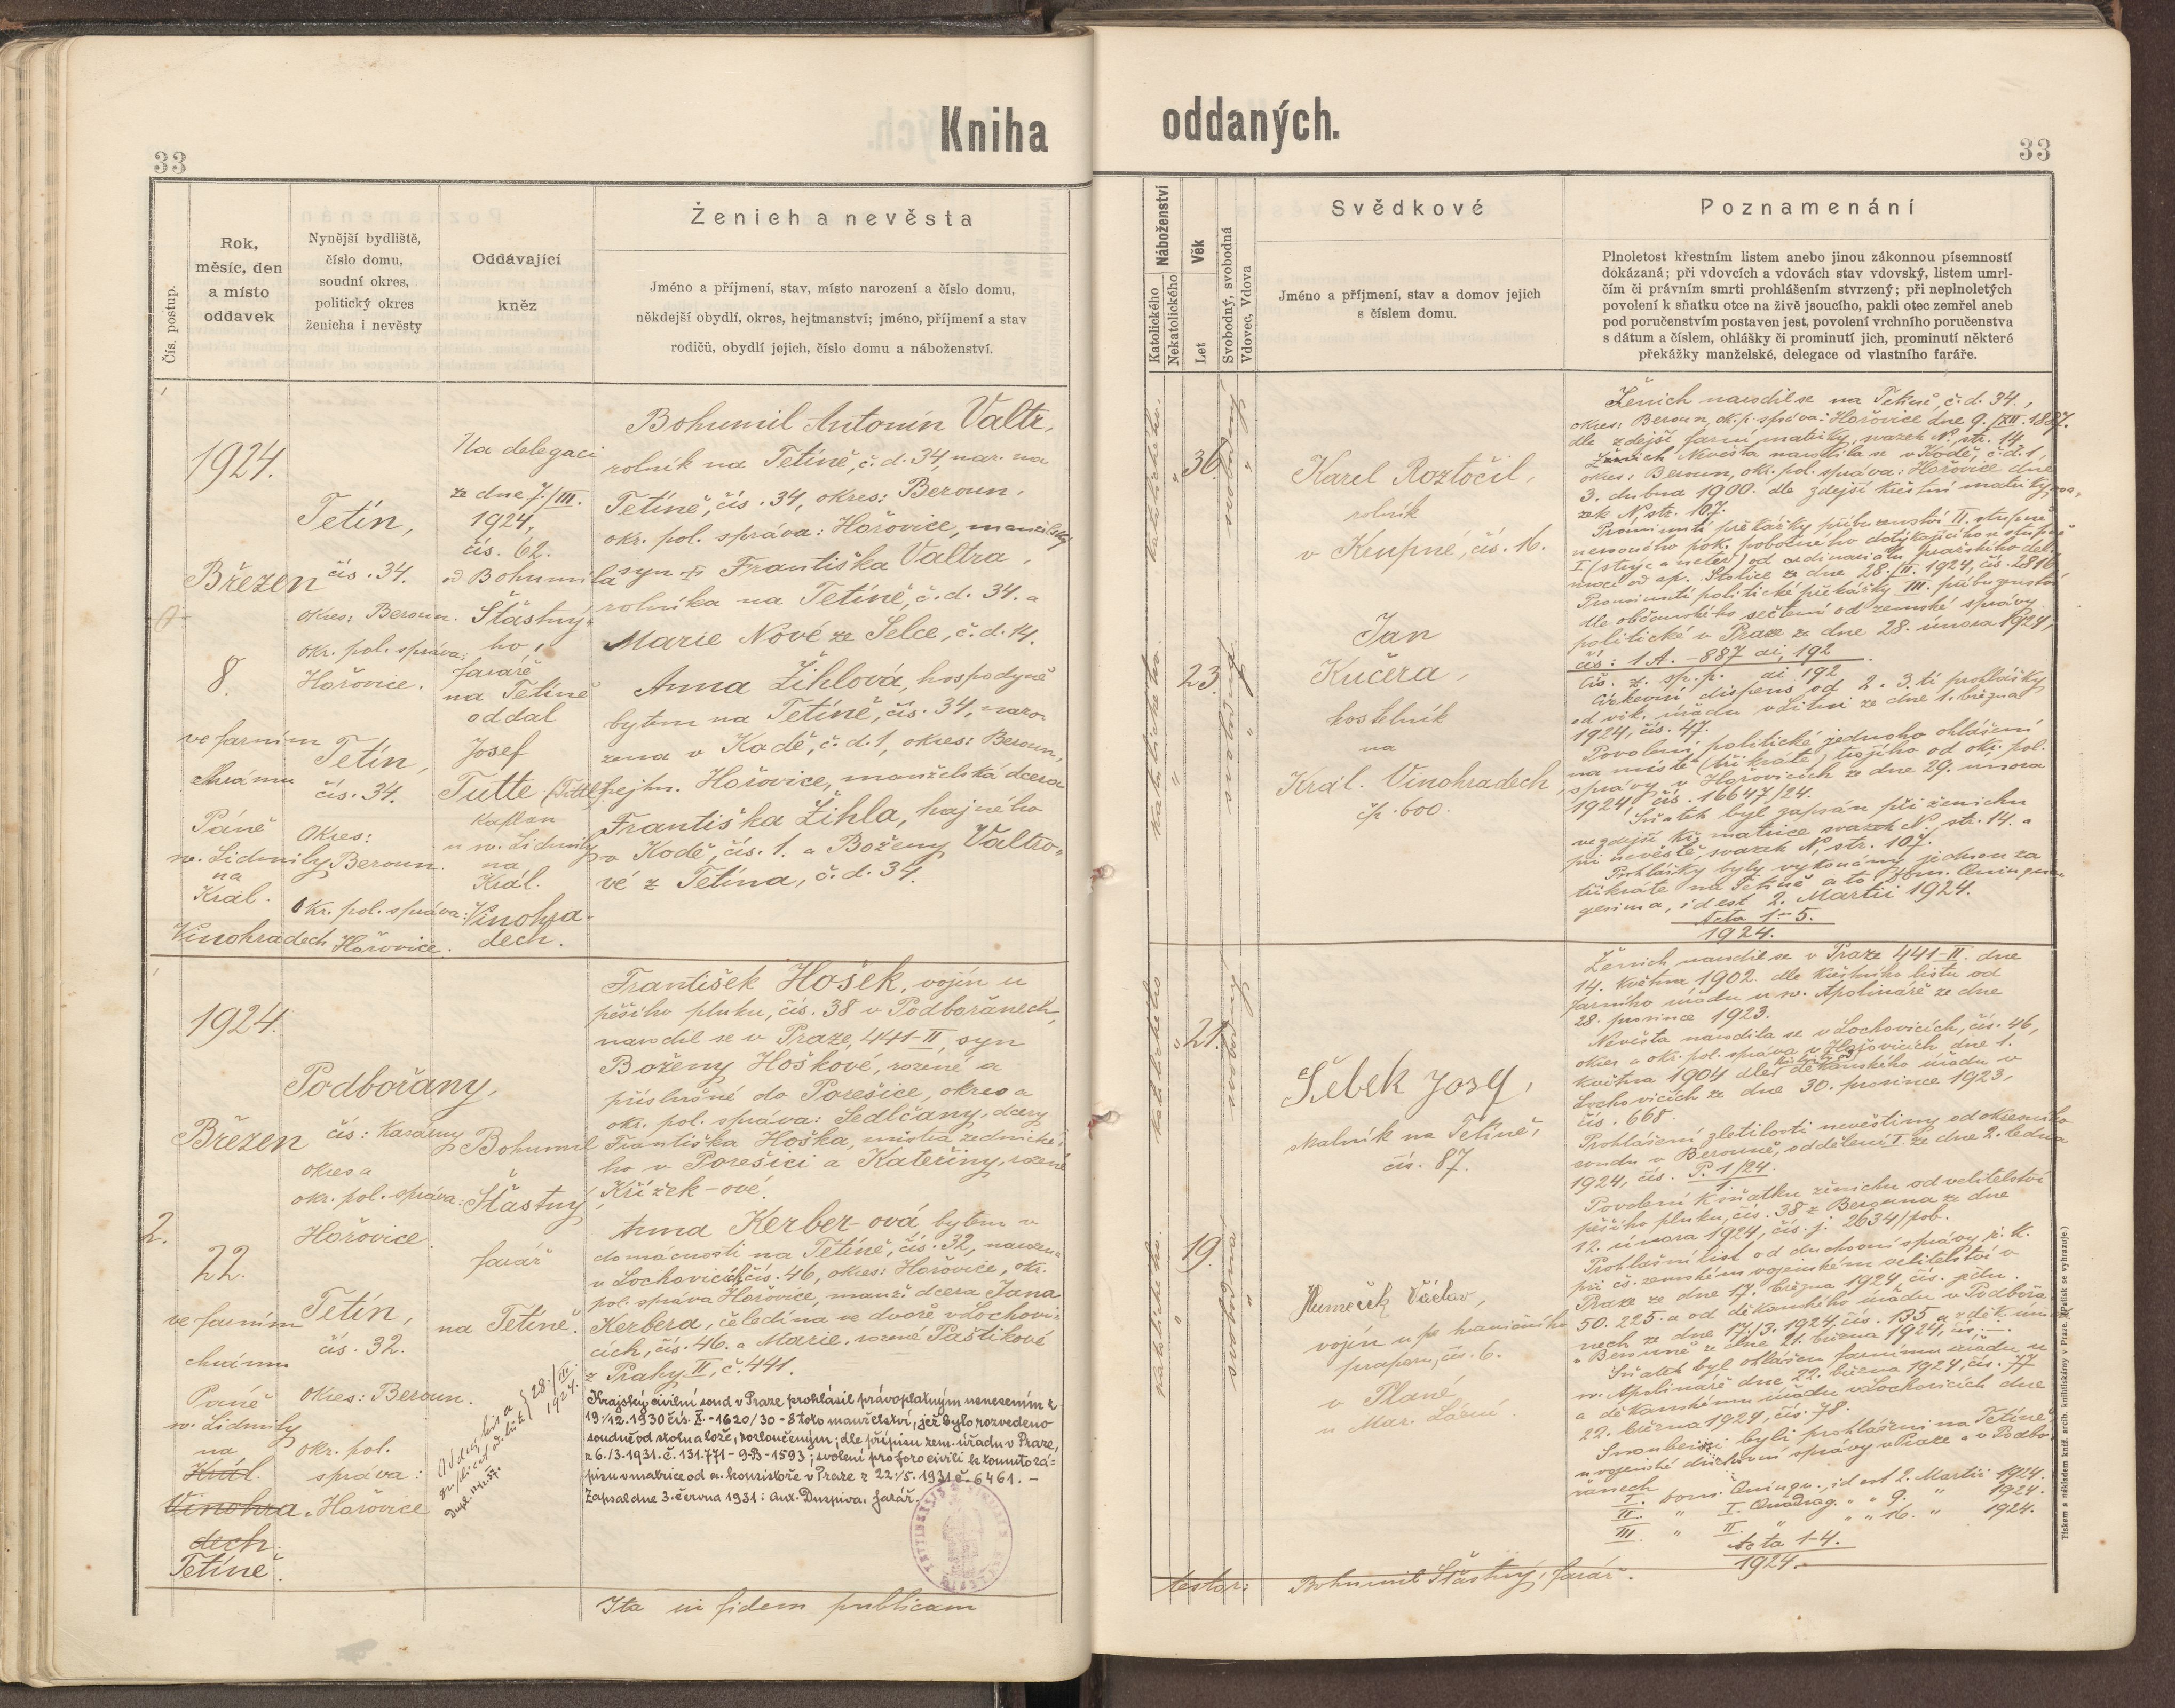 Kniha oddaných.
33
33
Čís. postup.
Rok,
měsíc, den
a místo
oddavek
Nynější bydliště,
číslo domu,
soudní okres,
politický okres
ženicha i nevěsty
Oddávající
kněz
Ženich a nevěsta
Jméno a příjmení, stav, místo narození a číslo domu,
někdejší obydlí, okres, hejtmanství; jméno, příjmení a stav
rodičů, obydlí jejich, číslo domu a náboženství.
Náboženství
Katolického
Nekatolického
Věk
Let
Svobodný, svobodná
Vdovec, Vdova
Svědkové
Jméno a příjmení, stav a domov jejich
s číslem domu.
Poznamenání
Plnoletost křestním listem anebo jinou zákonnou písemností
dokázaná; při vdovcích a vdovách stav vdovský, listem umrl-
čím či právním smrti prohlášením stvrzený; při neplnoletých
povolení k sňatku otce na živě jsoucího, pakli otec zemřel aneb
pod poručenstvím postaven jest, povolení vrchního poručenstva
s dátum a číslem, ohlášky či prominutí jich, prominutí některé
překážky manželské, delegace od vlastního faráře.
1924.
Březen
8.
ve farním
chrámu
Páně
sv. Lidmily
na
Král.
Vinohradech
Tetín,
čís. 34.
okres: Beroun.
okr. pol. správa:
Hořovice.
Tetín,
čís. 34.
Okres:
Beroun.
Okr. pol. správa:
Hořovice.
Na delegaci
ze dne 7./III.
1924,
čís. 62.
od Bohumila
Šťastný-
ho,
faráře
na Tetíně
oddal
Josef
Tutte (Tittl)
kaplan
u sv. Lidmily
na
Král.
Vinohra-
dech.
Bohumil Antonín Valtr,
rolník na Tetíně, č. d. 34, nar. na
Tetíně, čís. 34, okres: Beroun,
okr. pol. správa: Hořovice, manželský
syn Františka Valtra,
rolníka na Tetíně, č. d. 34. a
Marie Nové ze Selce, č. d. 14.
Anna Žihlová, hospodyně
bytem na Tetíně, čís. 34, naro-
zena v Kodě, č. d. 1, okres: Beroun,
hejtm. Hořovice, manželská dcera
Františka Žihla, hajného
v Kodě, čís. 1. a Boženy Valtro-
vé z Tetína, č. d. 34.
katolického.
"
36.
svobodný
"
katolického.
"
23.
svobodná.
"
Karel Roztočil,
rolník
v Krupné, čís. 16.
Jan
Kučera,
kostelník
na
Král. Vinohradech,
čp. 600.
Ženich narodil se na Tetíně, č. d. 34,
okres: Beroun, ok. p. správa: Hořovice dne 9./XII. 1887.
dle zdejší farní matriky, svazek N, str. 14.
Ženich Nevěsta narodila se v Kodě, č. d. 1,
okres: Beroun, okr. pol. správa: Hořovice dne
3. dubna 1900. dle zdejší křestní matriky, sva-
zek N, str. 107.
Prominutí překážky příbuzenství II. stupně
nerovného pok. pobočného dotýkajícího se stupně
I (strýc a neteř) od ordinariátu pražského dele-
gace od ap. Stolice ze dne 28./II. 1924, čís. 2816
Prominutí politické překážky III. příbuzenství
dle občanského sečtení od zemské správy
politické v Praze ze dne 28. února 1924,
čís: 1 A. – 887 ai, 192
Čís. z. sp. p. ai 192
Církevní dispens od 2. 3. tí prohlášky
od vik. úřadu v Litni ze dne 1. března
1924, čís. 47.
Povolení politické jednoho ohlášení
na místě (tři kráte) trojího od okr. pol.
správy v Hořovicích ze dne 29. února
1924, čís. 16647/24.
Sňatek byl zapsán při ženichu
ve zdejší kř. matrice svazek N, str. 14. a
při nevěstě, svazek N, str. 107.
Prohlášky byly vykonány jednou za
třikráte na Tetíně a to Dom. Quinqua-
gesima, id est 2. Martii 1924.
Acta 1–5.
1924.
2.
1924.
Březen
22.
ve farním
chrámu
Páně
sv. Lidmily
na
Král.
Vinohra-
dech.
Tetíně.
Podbořany,
čís: Kasárny
okres a
okr. pol. správa:
Hořovice.
Tetín,
čís. 32.
Okres: Beroun.
okr. pol.
správa:
Hořovice
Bohumil
Šťastný,
farář
na Tetíně.
28./III.
1924.
František Hošek, vojín u
pěšího pluku, čís. 38 v Podbořanech,
narodil se v Praze, 441–II, syn
Boženy Hoškové, rozené a
příslušné do Porešice, okres a
okr. pol. správa: Sedlčany, dcery
Františka Hoška, mistra zednické-
ho v Porešici a Kateřiny, rozené
Křížek-ové.
Anna Kerber-ová bytem v
domácnosti na Tetíně, čís. 32, narozena
v Lochovicích, čís. 46, okres: Hořovice, okr.
pol. správa Hořovice, manž. dcera Jana
Kerbera, čeledína ve dvoře v Lochovi-
cích, čís. 46. a Marie, rozené Paštikové
z Prahy II, č. 441.
Krajský civilní soud v Praze prohlásil právoplatným usnesením z
19./12. 1930 čís. X.-1620/30-8 toto manželství, jež bylo rozvedeno
soudně od stolu a lože, rozloučeným; dle přípisu zem. úřadu v Praze,
z 6./3. 1931. č. 131.771-9-B-1593; svolení pro foro civili k tomuto zá-
pisu v matrice od a. konsistoře v Praze z 22./5. 1931 č. 6461. –
Zapsal dne 3. června 1931: Ant. Duspiva, farář.
katolického
"
21.
svobodný
"
katolického.
"
19.
svobodna
"
Šebek Josef,
skalník na Tetíně,
čís. 87.
Václav,
vojín u p. hraničního
praporu, čís. 6.
v Plané
u Mar. Lázní.
Ženich narodil se v Praze 441–II. dne
14. května 1902. dle křestního listu od
farního úřadu u sv. Apolináře ze dne
28. prosince 1923.
Nevěsta narodila se v Lochovicích, čís. 46,
okres a okr. pol. správa v Hořovicích dne 1.
května 1904 dle děkanského úřadu v
Lochovicích ze dne 30. prosince 1923,
čís. 668.
Prohlášení zletilosti nevěstiny od okresního
soudu v Berouně, oddělení I. ze dne 2. ledna
1924, čís. P. 1/24.
Povolení k sňatku ženichu od velitelství
pěšího pluku, čís. 38 z Berouna ze dne
12. února 1924, čís. j. 2634/pob.
Prohlašní list od duchovní správy ř. k.
při čs. zemském vojenském velitelství v
Praze ze dne 17. března 1924, čís. jedn.
50.225. a od děkanského úřadu v Podbořa-
nech ze dne 17./3. 1924, čís. 135 a z děk. úřa.
v Berouně ze dne 21. března 1924, čís. –.
Sňatek byl ohlášen farnímu úřadu u
sv. Apolináře dne 22. března 1924, čís. 77
a děkanskému úřadu v Lochovicích dne
22. března 1924, čís. 78.
Snoubenci byli prohlášeni na Tetíně,
u vojenské duchovní správy v Praze a v Podbo-
řanech
I. dom. Quinqu., id est 2. Martii 1924.
II. " I. Quadrag. " " 9. " 1924.
III. " II. " " " 16. " 1924.
Acta 1–4.
1924.
Ita in fidem publicam
testor: Bohumil Šťastný, farář.
Tiskem a nákladem kníž. arcib. knihtiskárny v Praze. (Patisk se vyhrazuje.)